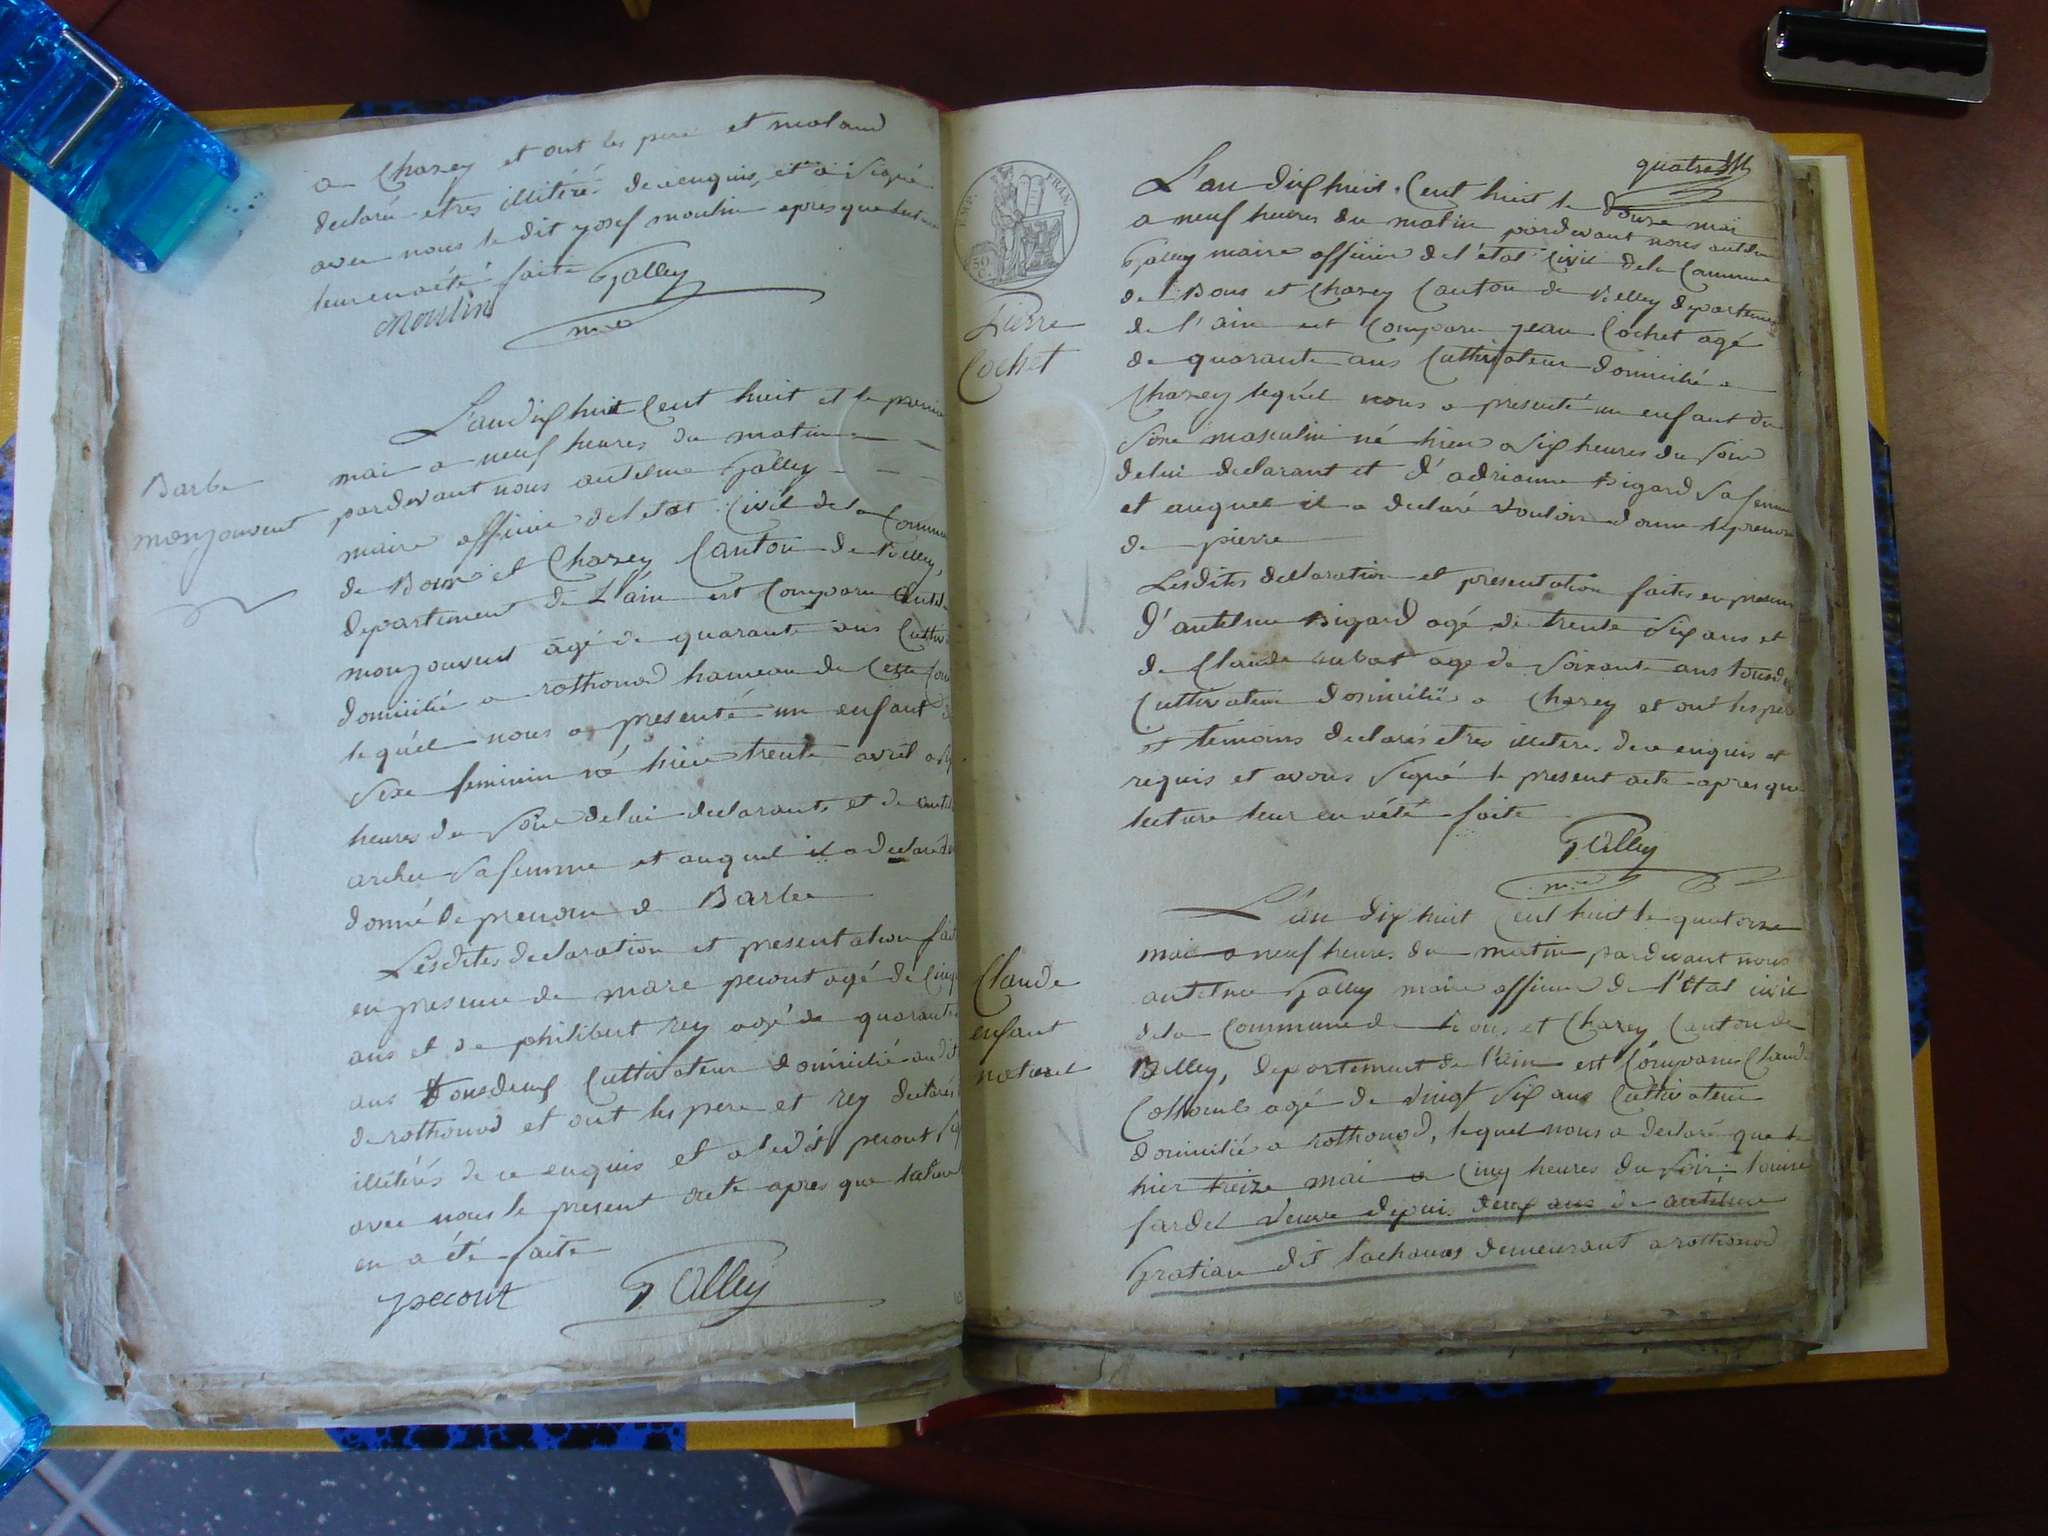 a Chazey et ont les pere et molard
declaré etres illitéré de ce enquis, et a signé
avec nous le dit yosef moulin apres que lecture
leur en a été faite
Moulin Galley
m.re
Barbe
monjouvent
L'an dix huit Cent huit et le premier
mai a neuf heures du matin
pardevant nous antelme Galley
maire officier de l'etat Civil de la Commune
de Bons et Chazey Canton de Belley,
departement de L'ain est Comparu
monjouvent agé de quarante ans
domicilié a rothonod hameau de
lequel nous a presenté un enfant
sexe feminin né hier trente avril a
heures du soir de lui declarant et de
archer sa femme et auquel il a declaré
donné le prenom de Barbe
Lesdites declaration et presentation
en presence de marc pecout agé de
ans et de philibert rey agé de quarante
ans tous deux Cultivateur domicilié
de rothonod et ont les pere et rey declarés
illitérés de ce enquis et a ledit pecout
avec nous le present acte apres que lecture
en a été faite
pecout Galley
quatre
EMP. FRAN.
50 C.
Pierre
Cochet
L'an dix huit Cent huit le douze mai
a neuf heures du matin pardevant nous antelme
Galley maire officier de l'état Civil de la Commune
de Bons et Chazey Canton de Belley departement
de l'ain est Comparu jean Cochet agé
de quarante ans Cultivateur domicilié a
Chazey lequel nous a presenté un enfant du
sexe masculin né hier a six heures du soir
de lui declarant et d'adrianne Bigard sa femme
et auquel il a declaré vouloir donner le prenom
de pierre
Lesdites declaration et presentation faites en presence
d'antelme Bigard agé de trente six ans et
de Claude agé de soixante ans tous deux
Cultivateur domicilié a Chazey et ont les pere
et témoins declarés etres illiteres de ce enquis et
requis et avons signé le present acte apres que
lecture leur en a été faite
Galley
m.re
Claude
enfant
naturel
L'an dix huit Cent huit le quatorze
mai a neuf heures du matin pardevant nous
antelme Galley maire officier de l'état civil
de la Commune de Bons et Chazey Canton de
Belley, departement de l'ain est Comparu Claude
agé de vingt six ans Cultivateur
domicilié a rothonod, lequel nous a declaré que le
hier treize mai a Cinq heures du soir louise
fardel veuve depuis deux ans de antelme
Gratian dit demeurant a rothonod